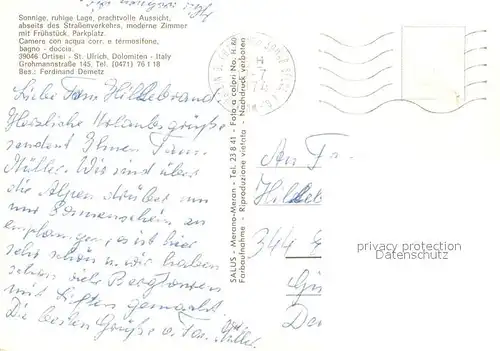 Sonnige, ruhige Lage, prachtvolle Aussicht,
abseits des Straßenverkehrs, moderne Zimmer
mit Frühstück. Parkplatz.
Camere con acqua corr. e termosifone,
bagno - doccia.
39046 Ortisei - St. Ulrich, Dolomiten - Italy
Grohmannstraße 145, Tel. (0471) 76 1 18
Bes.: Ferdinand Demetz
Liebe Fam Hildebrandt.
Herzliche Urlaubsgrüße
sendet Ihnen Fam.
Müller. Wir sind über
die Alpen drüber um
um Sonnenschein zu
empfangen, es ist hier
sehr schön u. wir haben
schon viele Bergtouren
mit Liften gemacht.
Die besten Grüße v. Fam. Müller.
SALUS - Merano-Meran - Tel. 23 8 41 - Foto a colori No. H 80
Farbaufnahme - Riproduzione vietata - Nachdruck verboten
An Fa
Hildeb
344
privacy protection
Datenschutz